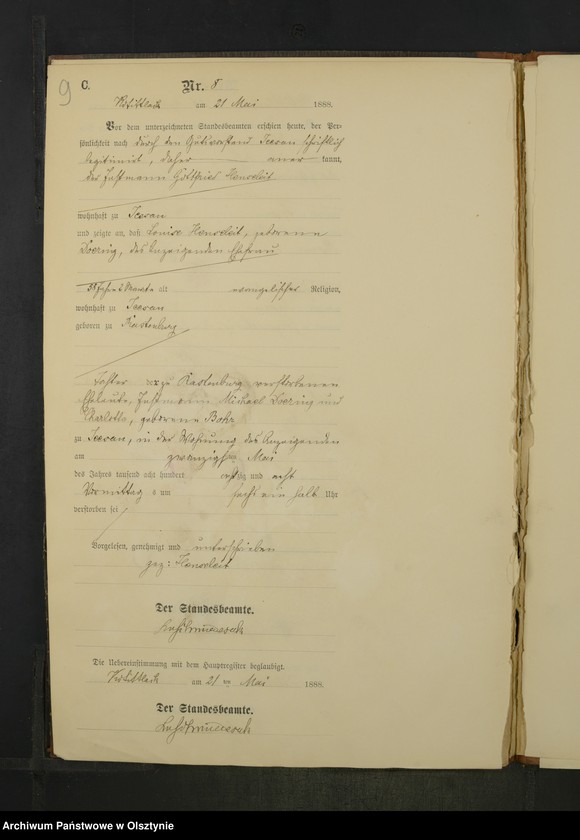 9
C.
Nr. 8
am 21 Mai 1888.
Vor dem unterzeichneten Standesbeamten erschien heute, der Per-
sönlichkeit nach durch den Gutsvorstand schriftlich
legitimirt, daher kannt,
der Instmann Gottfried Henseleit
wohnhaft zu
und zeigte an, daß Louise Henseleit, geborene
Doering, des Anzeigenden Ehefrau
Jahre 2 Monate alt evangelischer Religion,
wohnhaft zu
geboren zu Rastenburg
Tochter der zu Rastenburg verstorbenen
Eheleute, Instmann Michael Doering und
Charlotte, geborene
zu in der Wohnung des Anzeigenden
am zwanzigsten Mai
des Jahres tausend acht hundert achtzig und acht
Vormittag s um ein halb Uhr
verstorben sei
Vorgelesen, genehmigt und unterschrieben
gez: Henseleit
Der Standesbeamte.
Die Uebereinstimmung mit dem Hauptregister beglaubigt.
am 21 ten Mai 1888.
Der Standesbeamte.
Archiwum Państwowe w Olsztynie